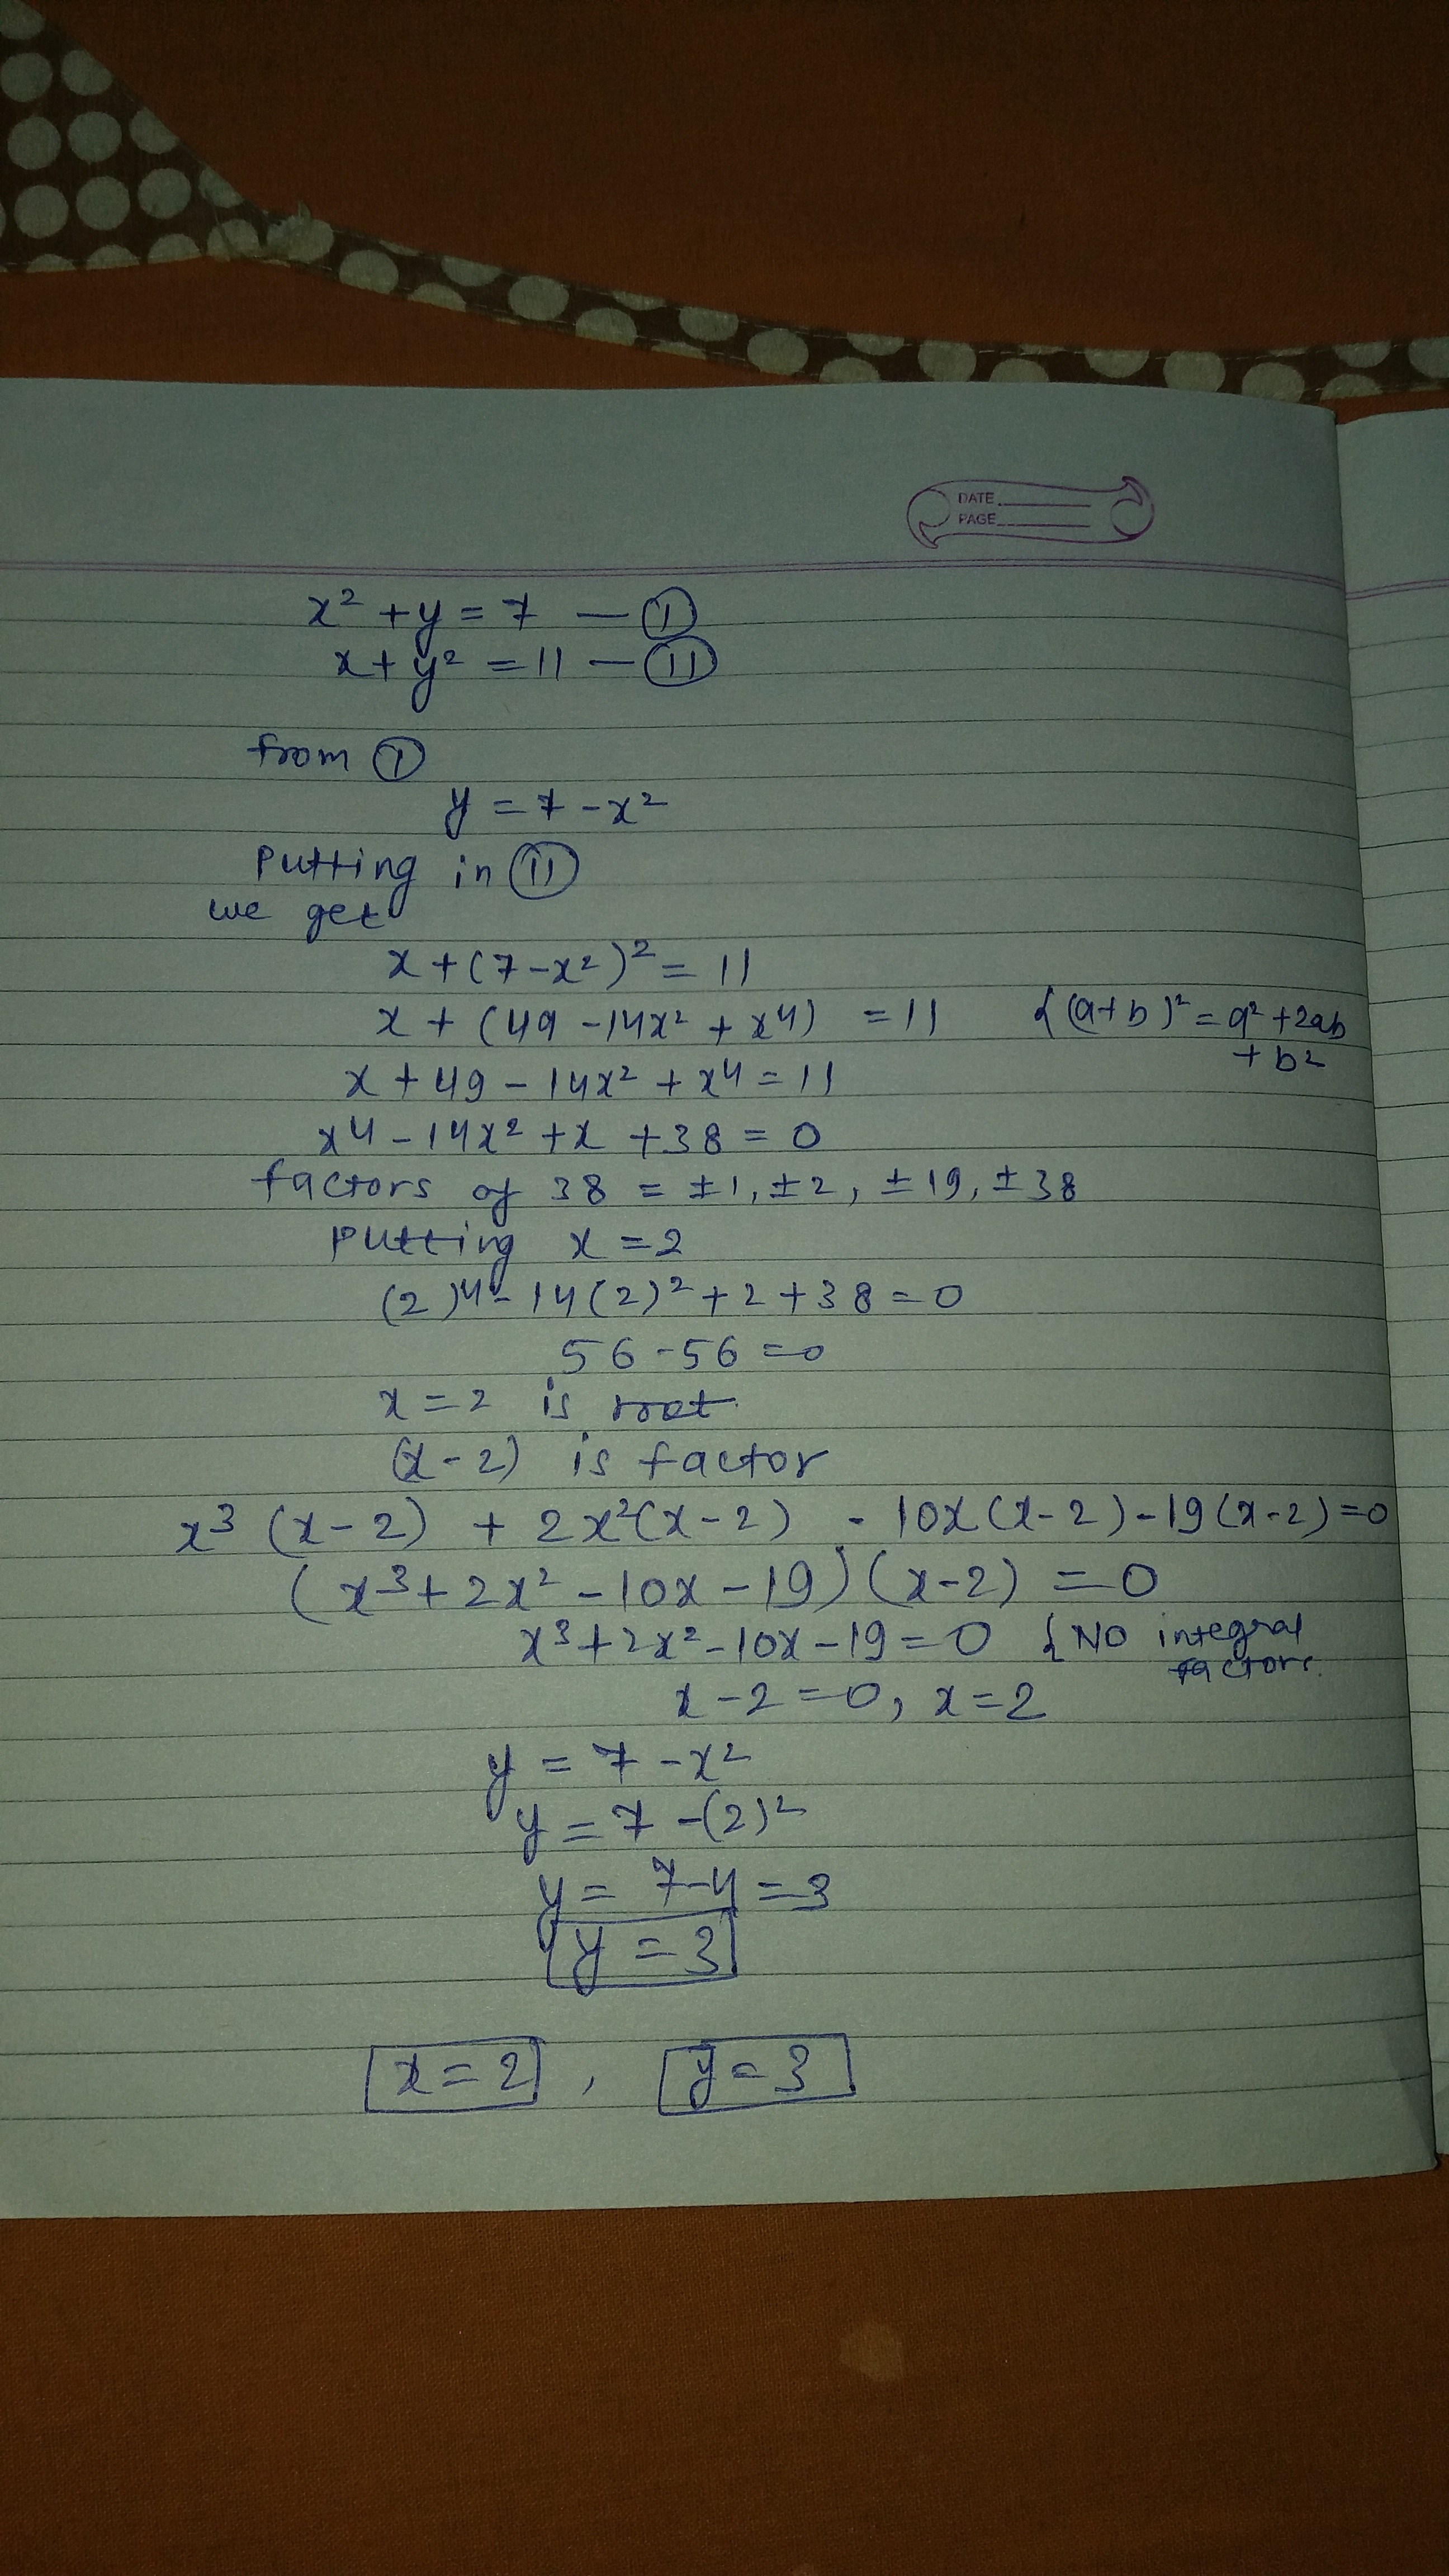 DATE
PAGE
x² + y = 7 — (I)
x + y² = 11 — (II)
from (I)
y = 7 - x²
Putting in (II)
we get
x + (7 - x²)² = 11
x + (49 - 14x² + x⁴) = 11 { (a+b)² = a² + 2ab
+ b²
x + 49 - 14x² + x⁴ = 11
x⁴ - 14x² + x + 38 = 0
factors of 38 = ±1, ±2, ±19, ±38
Putting x = 2
(2)⁴ - 14(2)² + 2 + 38 = 0
56 - 56 = 0
x = 2 is root
(x - 2) is factor
x³ (x - 2) + 2x²(x - 2) - 10x(x - 2) - 19(x - 2) = 0
(x³ + 2x² - 10x - 19)(x - 2) = 0
x³ + 2x² - 10x - 19 = 0 { NO integral
factors.
x - 2 = 0, x = 2
y = 7 - x²
y = 7 - (2)²
y = 7 - 4 = 3
y = 3
x = 2 , y = 3